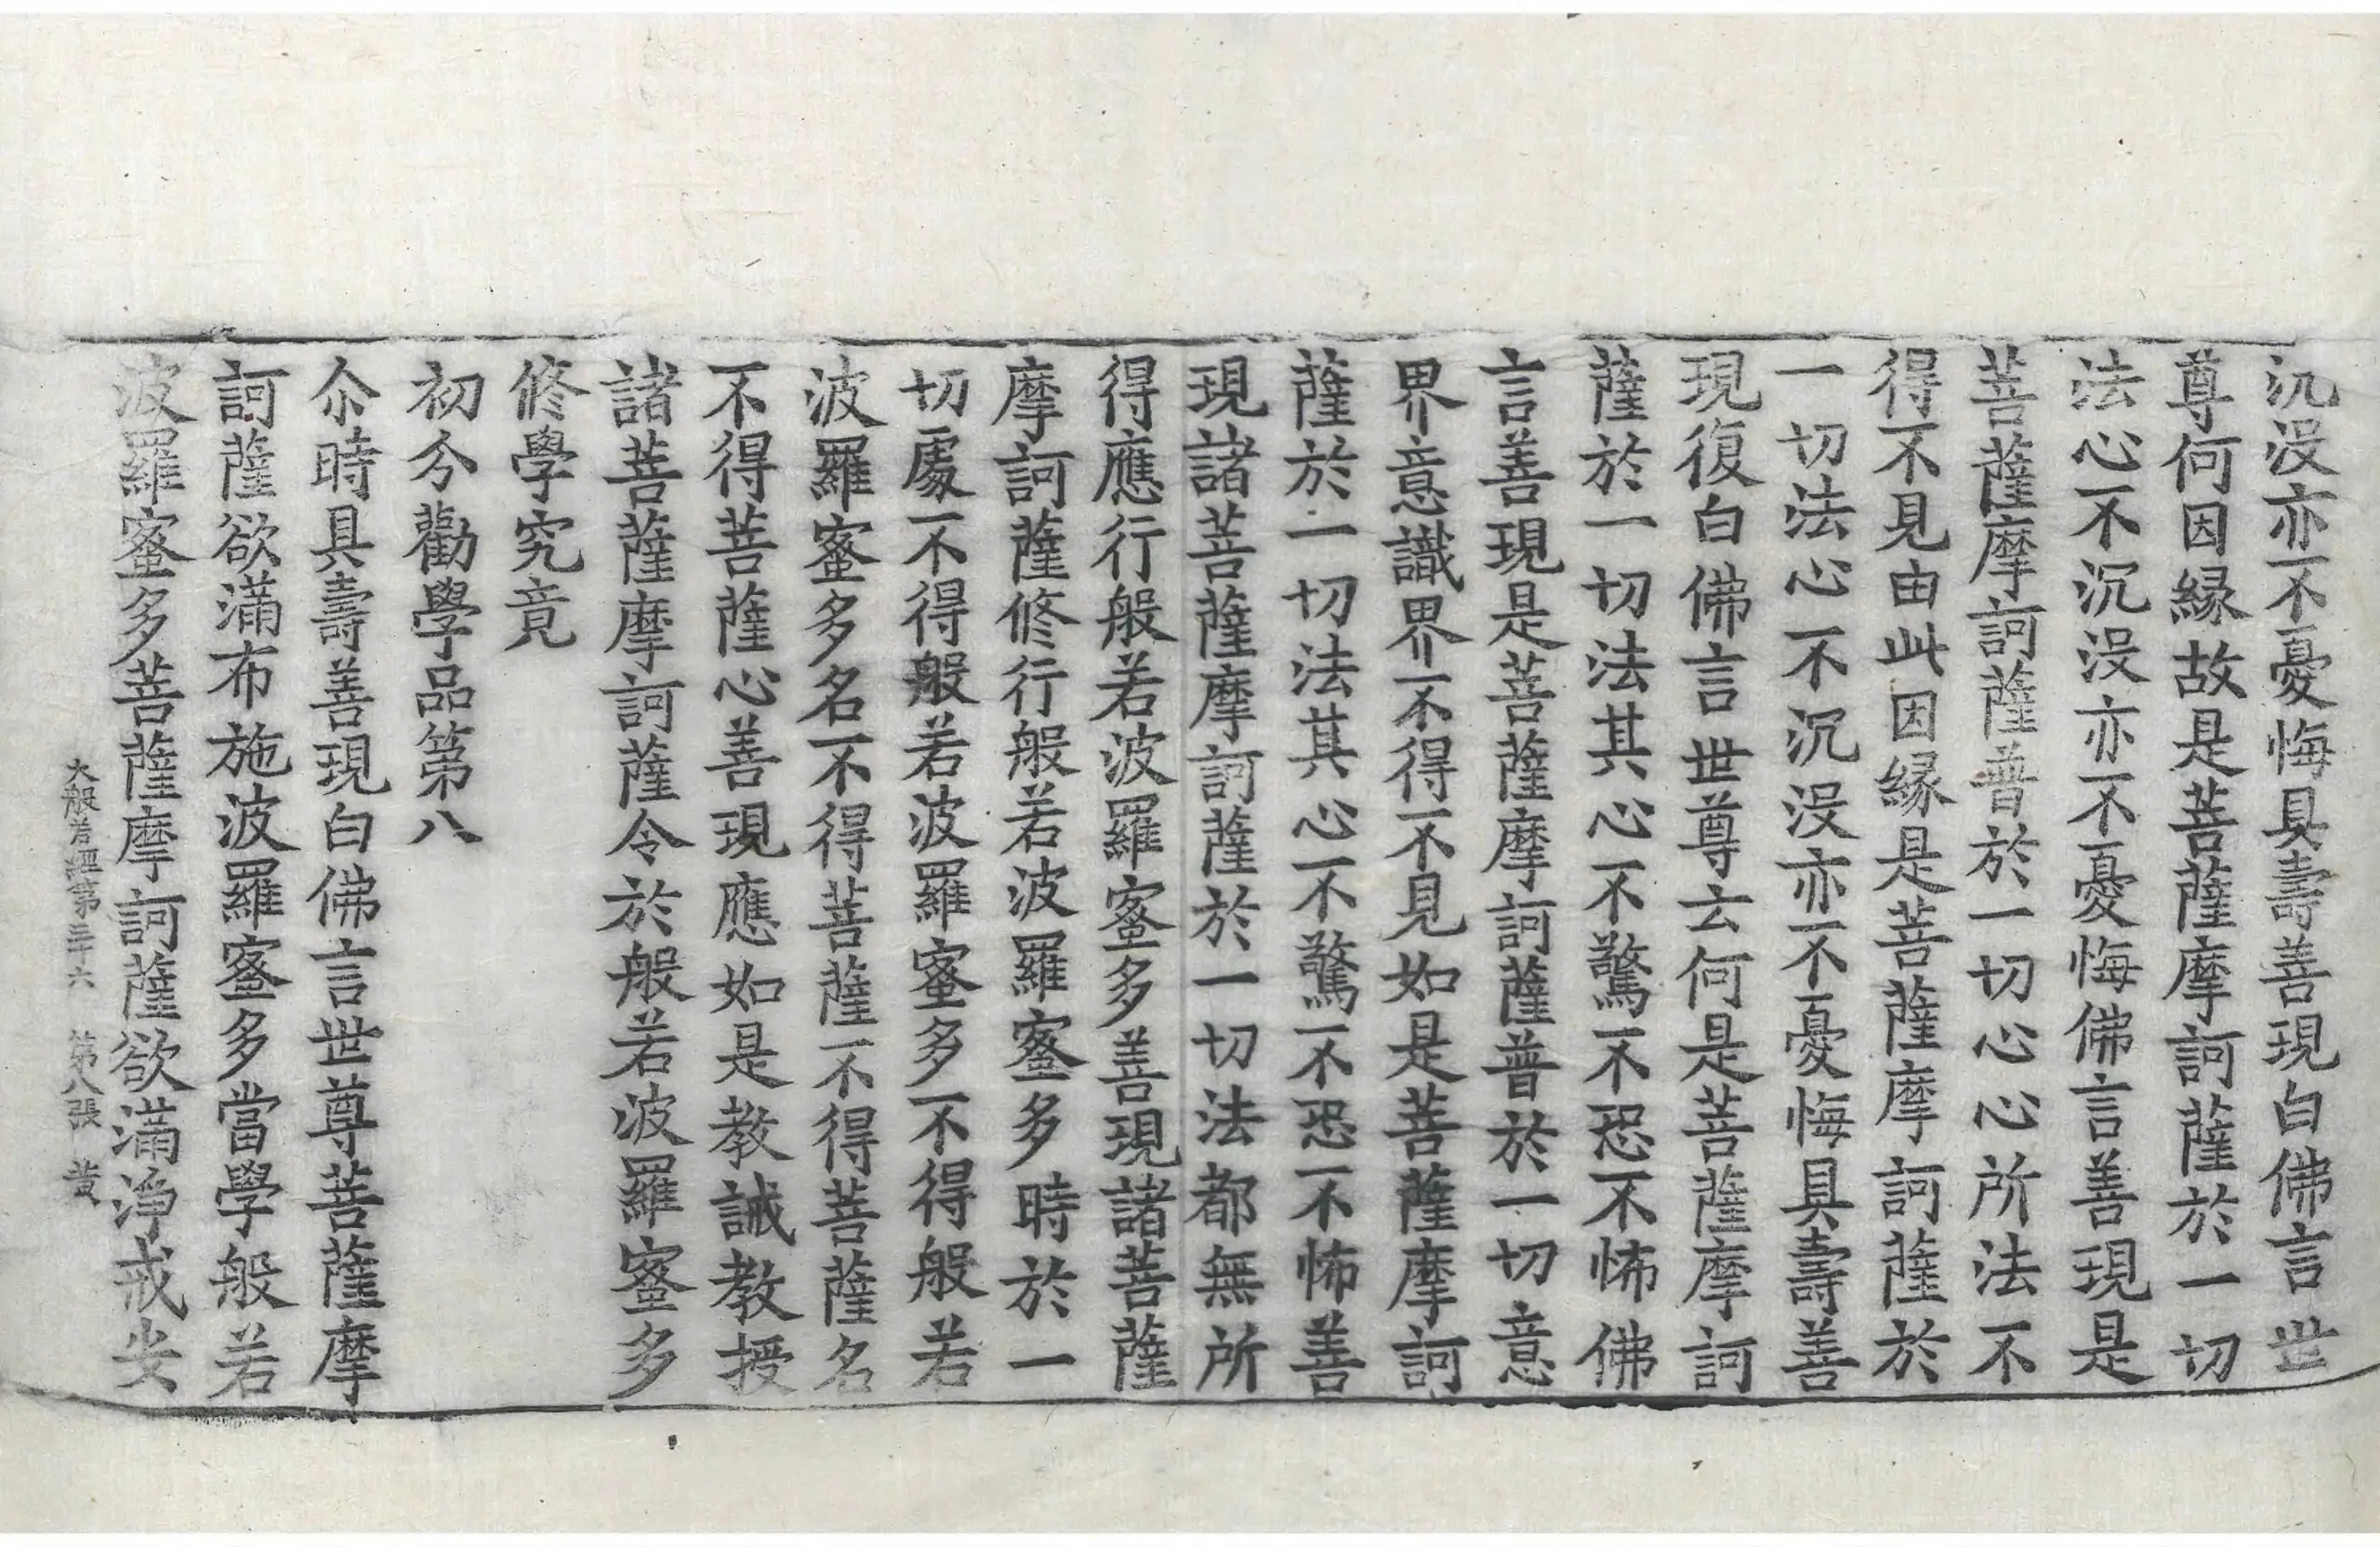 沉没亦不憂悔具壽善現白佛言世
尊何因縁故是菩薩摩訶薩於一切
法心不沉没亦不憂悔佛言善現是
菩薩摩訶薩普於一切心心所法不
得不見由此因縁是菩薩摩訶薩於
一切法心不沉没亦不憂悔具壽善
現復白佛言世尊云何是菩薩摩訶
薩於一切法其心不驚不恐不怖佛
言善現是菩薩摩訶薩普於一切意
界意識界不得不見如是菩薩摩訶
薩於一切法其心不驚不恐不怖善
現諸菩薩摩訶薩於一切法都無所
得應行般若波羅蜜多善現諸菩薩
摩訶薩修行般若波羅蜜多時於一
切處不得般若波羅蜜多不得般若
波羅蜜多名不得菩薩不得菩薩名
不得菩薩心善現應如是教誡教授
諸菩薩摩訶薩令於般若波羅蜜多
修學究竟
初分勸學品第八
尒時具壽善現白佛言世尊菩薩摩
訶薩欲滿布施波羅蜜多當學般若
波羅蜜多菩薩摩訶薩欲滿淨戒安
大般若經第三十六 第八張 黄